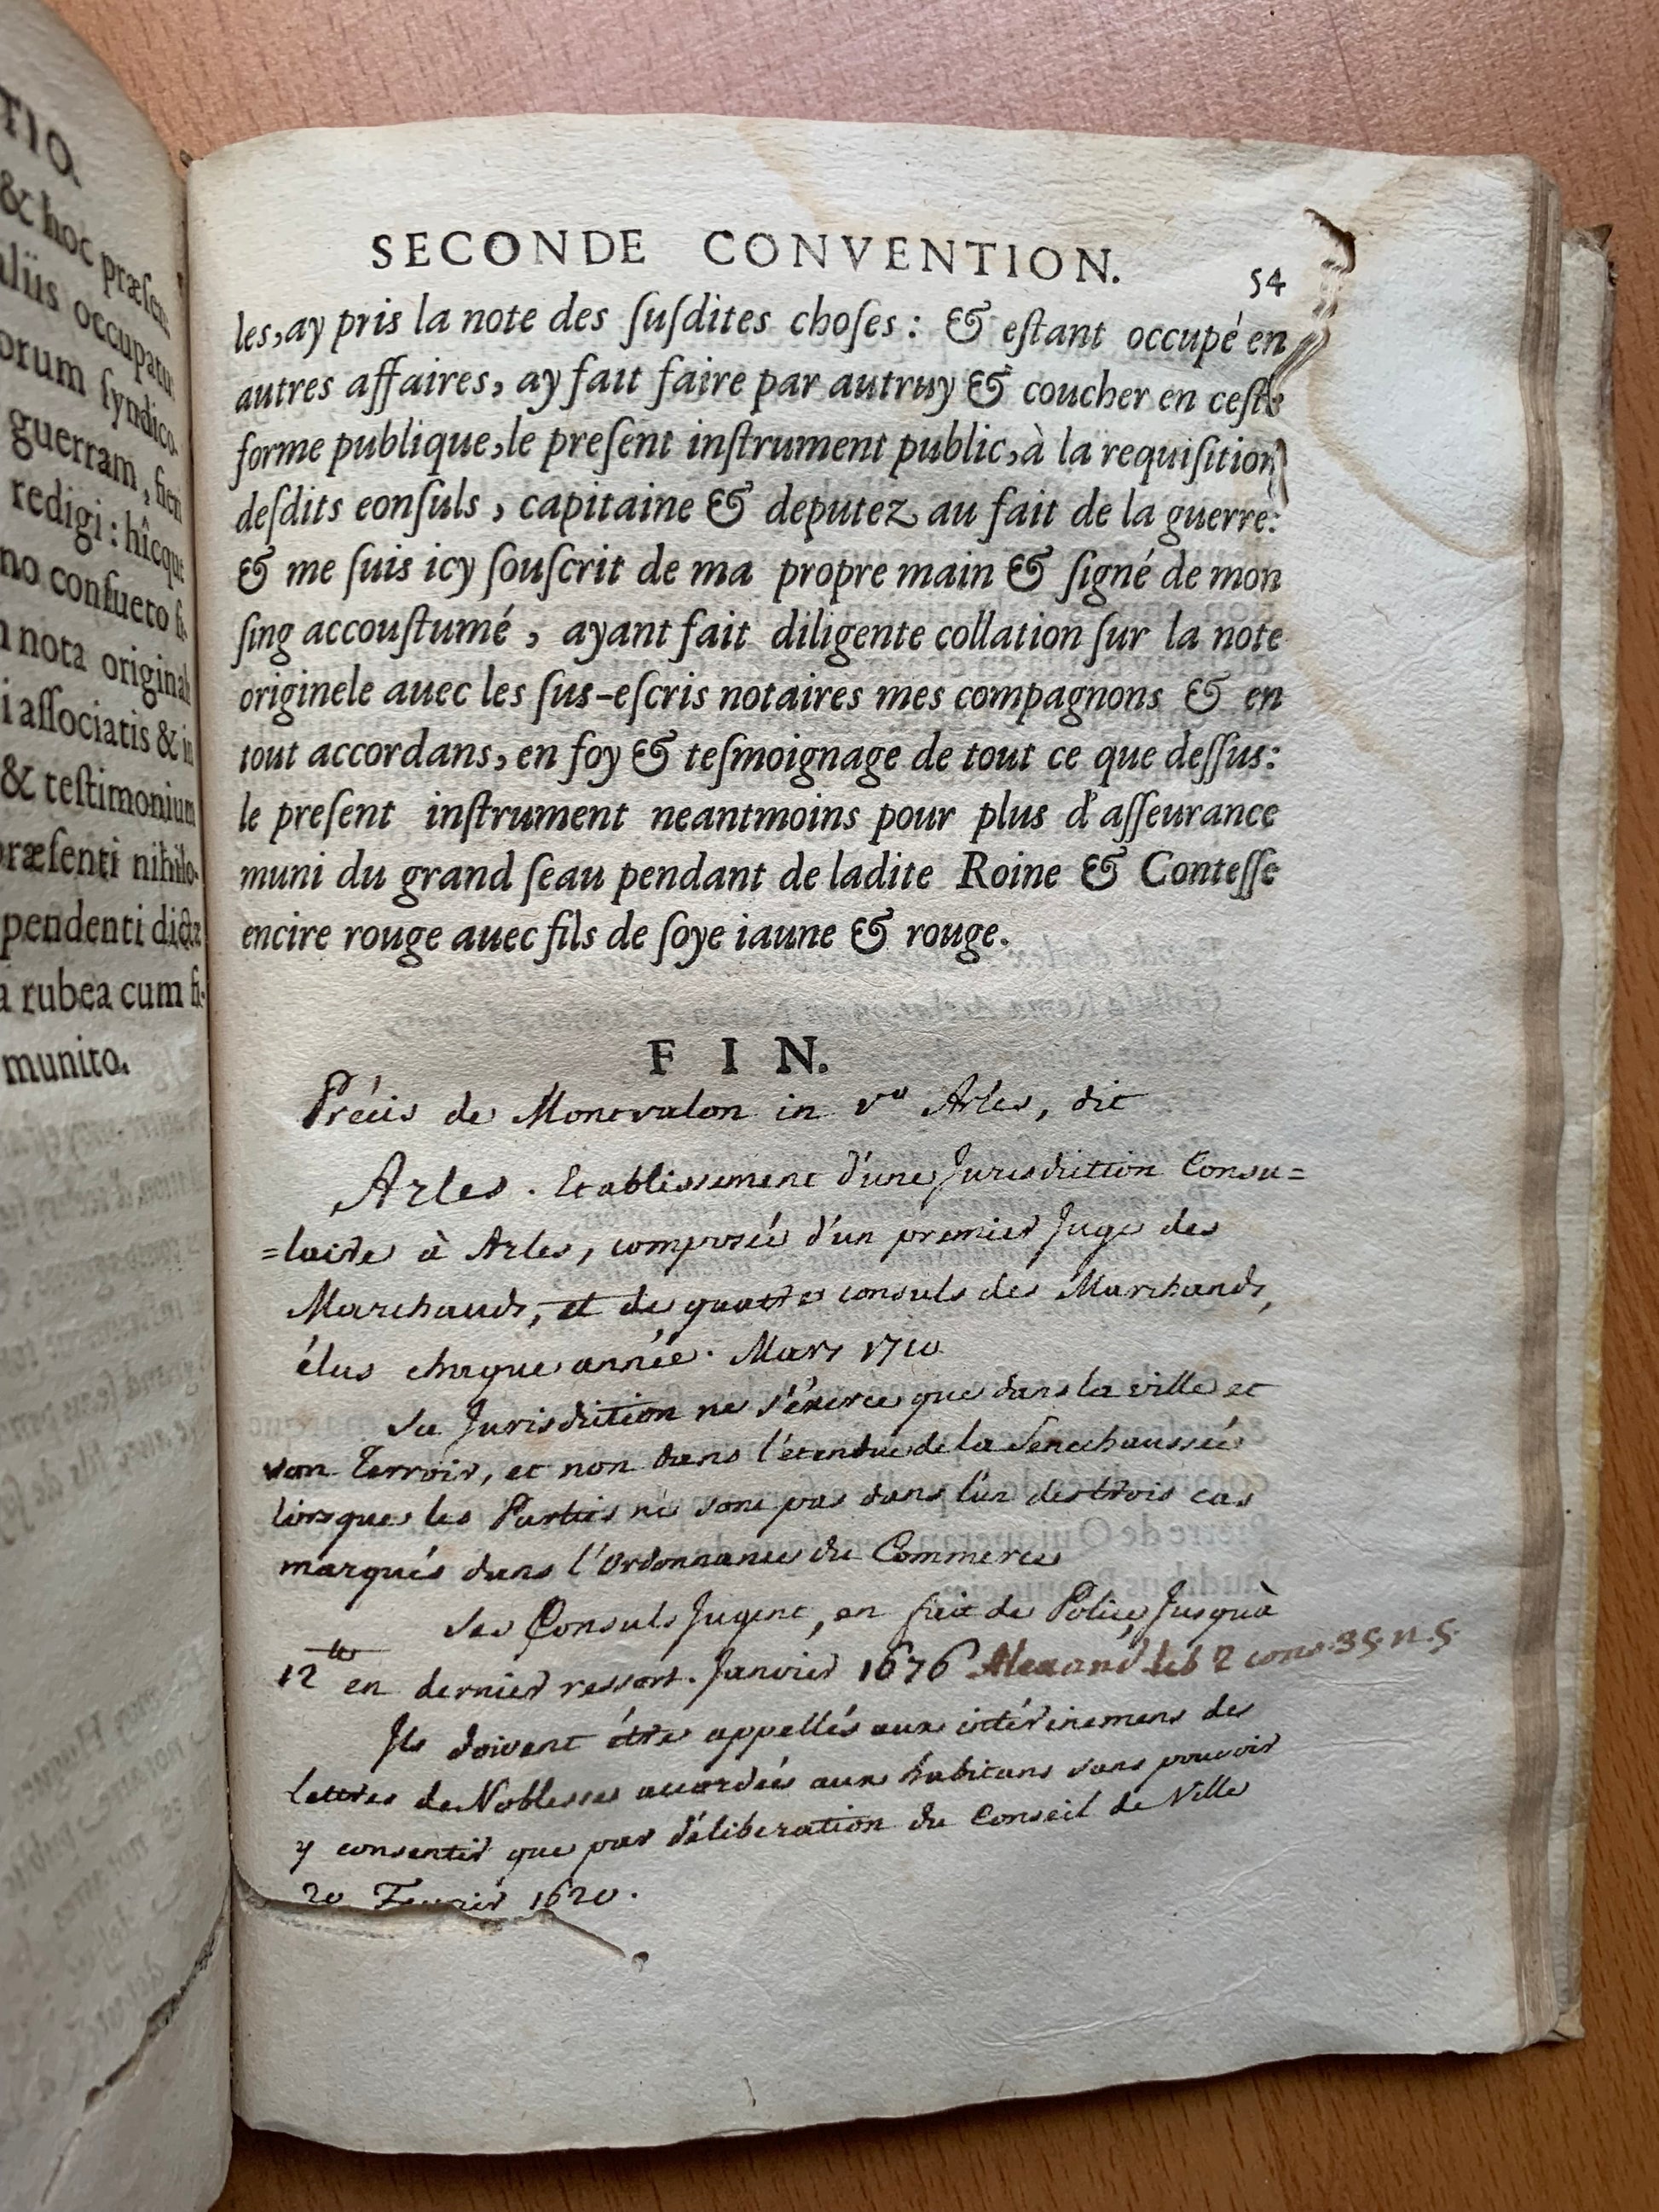 TIO.
& hoc præsens
aliis occupatu
orum syndico-
guerram, fieri
redigi: hîcque
no consueto si-
nota originali
i associatis & in
& testimonium
præsenti nihilo-
pendenti dictæ
a rubea cum fi-
munito.
SECONDE CONVENTION. 54
les, ay pris la note des ſuſdites choſes : & eſtant occupé en
autres affaires, ay fait faire par autruy & coucher en ceſte
forme publique, le preſent inſtrument public, à la requiſition
deſdits eonſuls , capitaine & deputez au fait de la guerre:
& me ſuis icy ſouſcrit de ma propre main & ſigné de mon
ſing accouſtumé , ayant fait diligente collation ſur la note
originele auec les ſus-eſcris notaires mes compagnons & en
tout accordans, en foy & teſmoignage de tout ce que deſſus:
le preſent inſtrument neantmoins pour plus d'aſſeurance
muni du grand ſeau pendant de ladite Roine & Conteſſe
encire rouge auec fils de ſoye iaune & rouge.
FIN.
Précis de Montvalon in v° Arles, dit
Arles. Etablissement d'une Jurisdiction Consu=
=laire à Arles, composée d'un premier Juge des
Marchands, et de quattre consuls des Marchands,
élus chaque année. Mars 1710
Sa Jurisdiction ne s'éxerce que dans la ville et
son Terroir, et non dans l'etendue de la Senechaussée
lorsque les Parties ne sont pas dans l'un des trois cas
marqués dans l'Ordonnance du Commerce
Les Consuls Jugent, en fait de Police, Jusquà
12 ₶ en dernier ressort. Janvier 1676 lib 2 cons. 35. n. 5.
Ils doivent être appellés aux intérinemens des
Lettres de Noblesse accordées aux habitans sans pouvoir
y consentir que par déliberation du Conseil de Ville
20 Fevrier 1620.